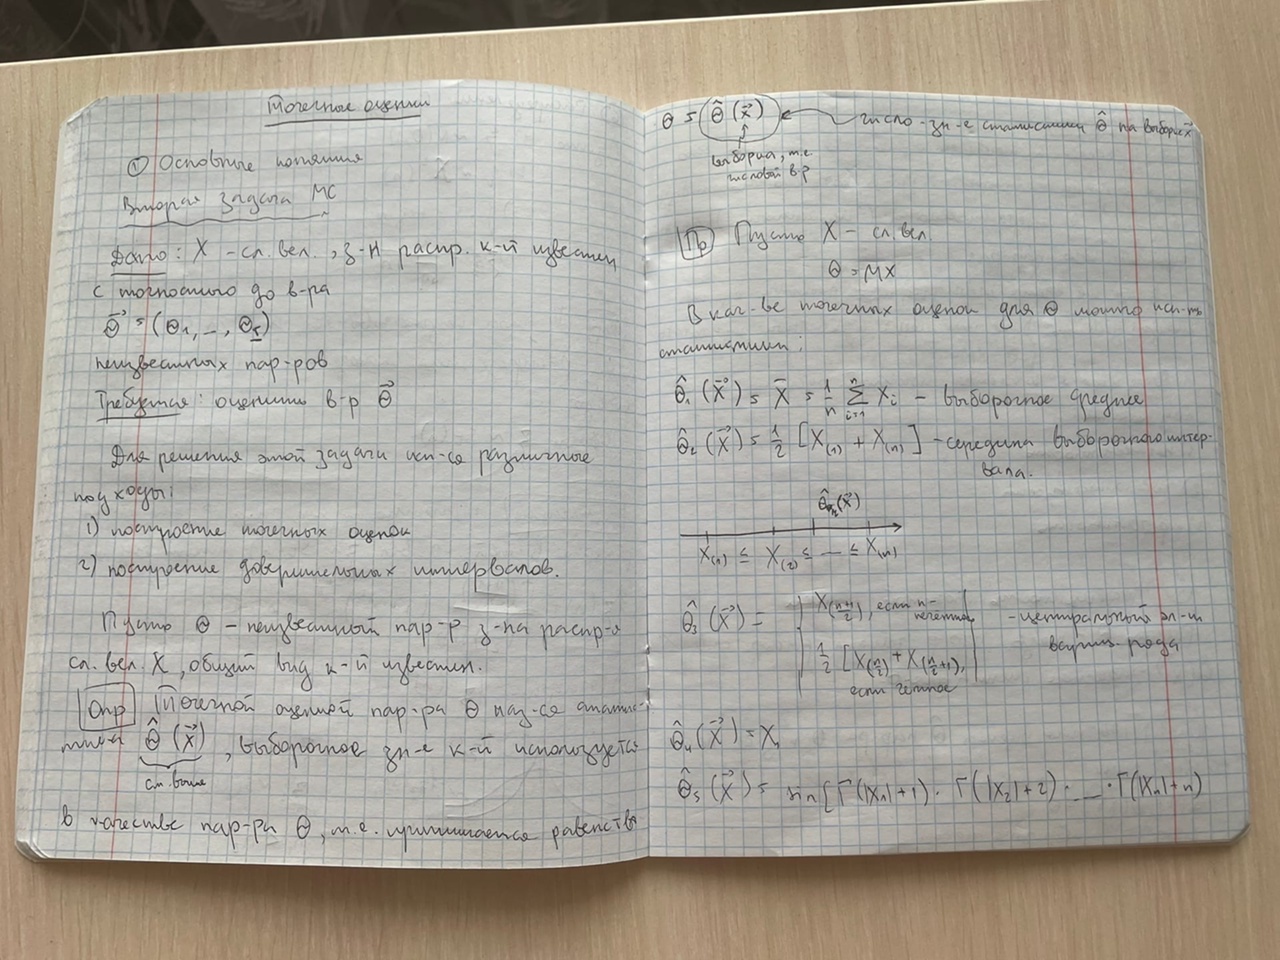 Точечные оценки
① Основные понятия
Вторая задача МС
Дано: X – сл. вел., з-н распр. к-й известен
с точностью до в-ра
θ⃗ = (θ₁, ..., θᵣ)
неизвестных пар-ров
Требуется: оценить в-р θ⃗
Для решения этой задачи исп-ся различные
подходы:
1) построение точечных оценок
2) построение доверительных интервалов.
Пусть θ – неизвестный пар-р з-на распр-я
сл. вел. X, общий вид к-й известен.
Опр Точечной оценкой пар-ра θ наз-ся статис-
тика θ̂(X⃗), выборочное зн-е к-й используется
см. выше
в качестве пар-ра θ, т.е. принимается равенство
θ = θ̂(x⃗) число - зн-е статистики θ̂ на выборке x⃗
выборка, т.е.
числовой в-р
Пр Пусть X – сл. вел.
θ = MX
В кач-ве точечных оценок для θ можно исп-ть
статистики:
θ̂₁(X⃗) = X̄ = 1/n Σⁿᵢ₌₁ Xᵢ – выборочное среднее
θ̂₂(X⃗) = 1/2 [X₍₁₎ + X₍ₙ₎] – середина выборочного интер-
вала.
θ̂₂(X⃗)
X₍₁₎ ≤ X₍₂₎ ≤ ... ≤ X₍ₙ₎
θ̂₃(X⃗) = X_((n+1)/2), если n- нечетная – центральный эл-т
1/2 [X_(n/2) + X_(n/2+1), вариац. ряда
если чётное
θ̂₄(X⃗) = X₁
θ̂₅(X⃗) = [Γ(|X₁|+1) · Γ(|X₂|+2) · ... · Γ(|Xₙ|+n)